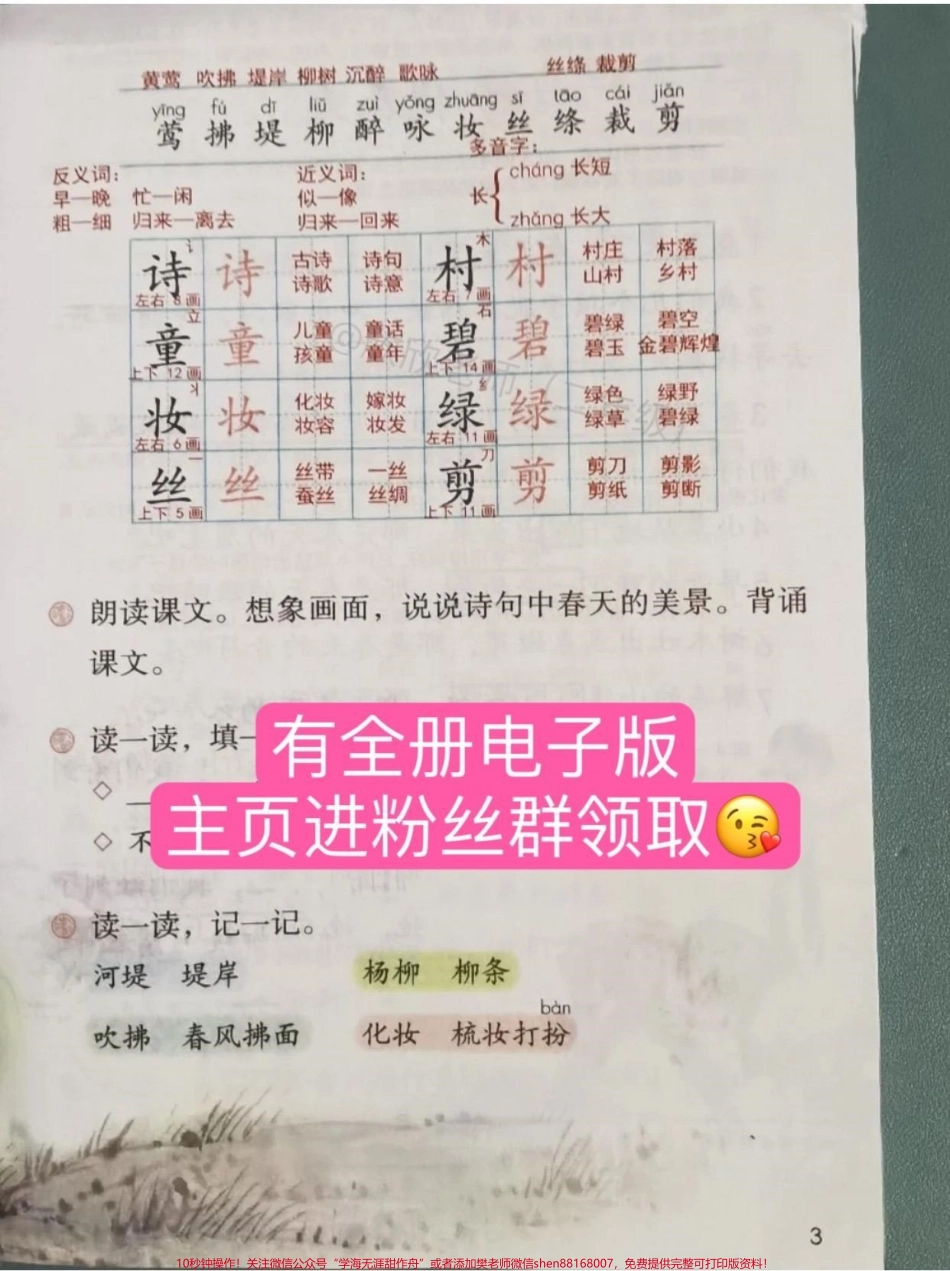 黄莺 吹拂 堤岸 柳树 沉醉 歌咏 丝绦 裁剪
yīng fú dī liǔ zuì yǒng zhuāng sī tāo cái jiǎn
莺 拂 堤 柳 醉 咏 妆 丝 绦 裁 剪
多音字：
反义词： 近义词： cháng 长短
早—晚 忙—闲 似—像 长
粗—细 归来—离去 归来—回来 zhǎng 长大
诗 讠 左右 8画 诗 古诗 诗句 诗歌 诗意 村 木 左右 7画 村 村庄 村落 山村 乡村
童 立 上下 12画 童 儿童 童话 孩童 童年 碧 石 上下 14画 碧 碧绿 碧空 碧玉 金碧辉煌
妆 丬 左右 6画 妆 化妆 嫁妆 妆容 妆发 绿 纟 左右 11画 绿 绿色 绿野 绿草 碧绿
丝 一 上下 5画 丝 丝带 一丝 蚕丝 丝绸 剪 刀 上下 11画 剪 剪刀 剪影 剪纸 剪断
朗读课文。想象画面，说说诗句中春天的美景。背诵
课文。
读一读，填一
有全册电子版
主页进粉丝群领取😘
不
读一读，记一记。
河堤 堤岸 杨柳 柳条
bàn
吹拂 春风拂面 化妆 梳妆打扮
3
10秒钟操作！关注微信公众号“学海无涯甜作舟”或者添加樊老师微信shen88168007，免费提供完整可打印版资料！